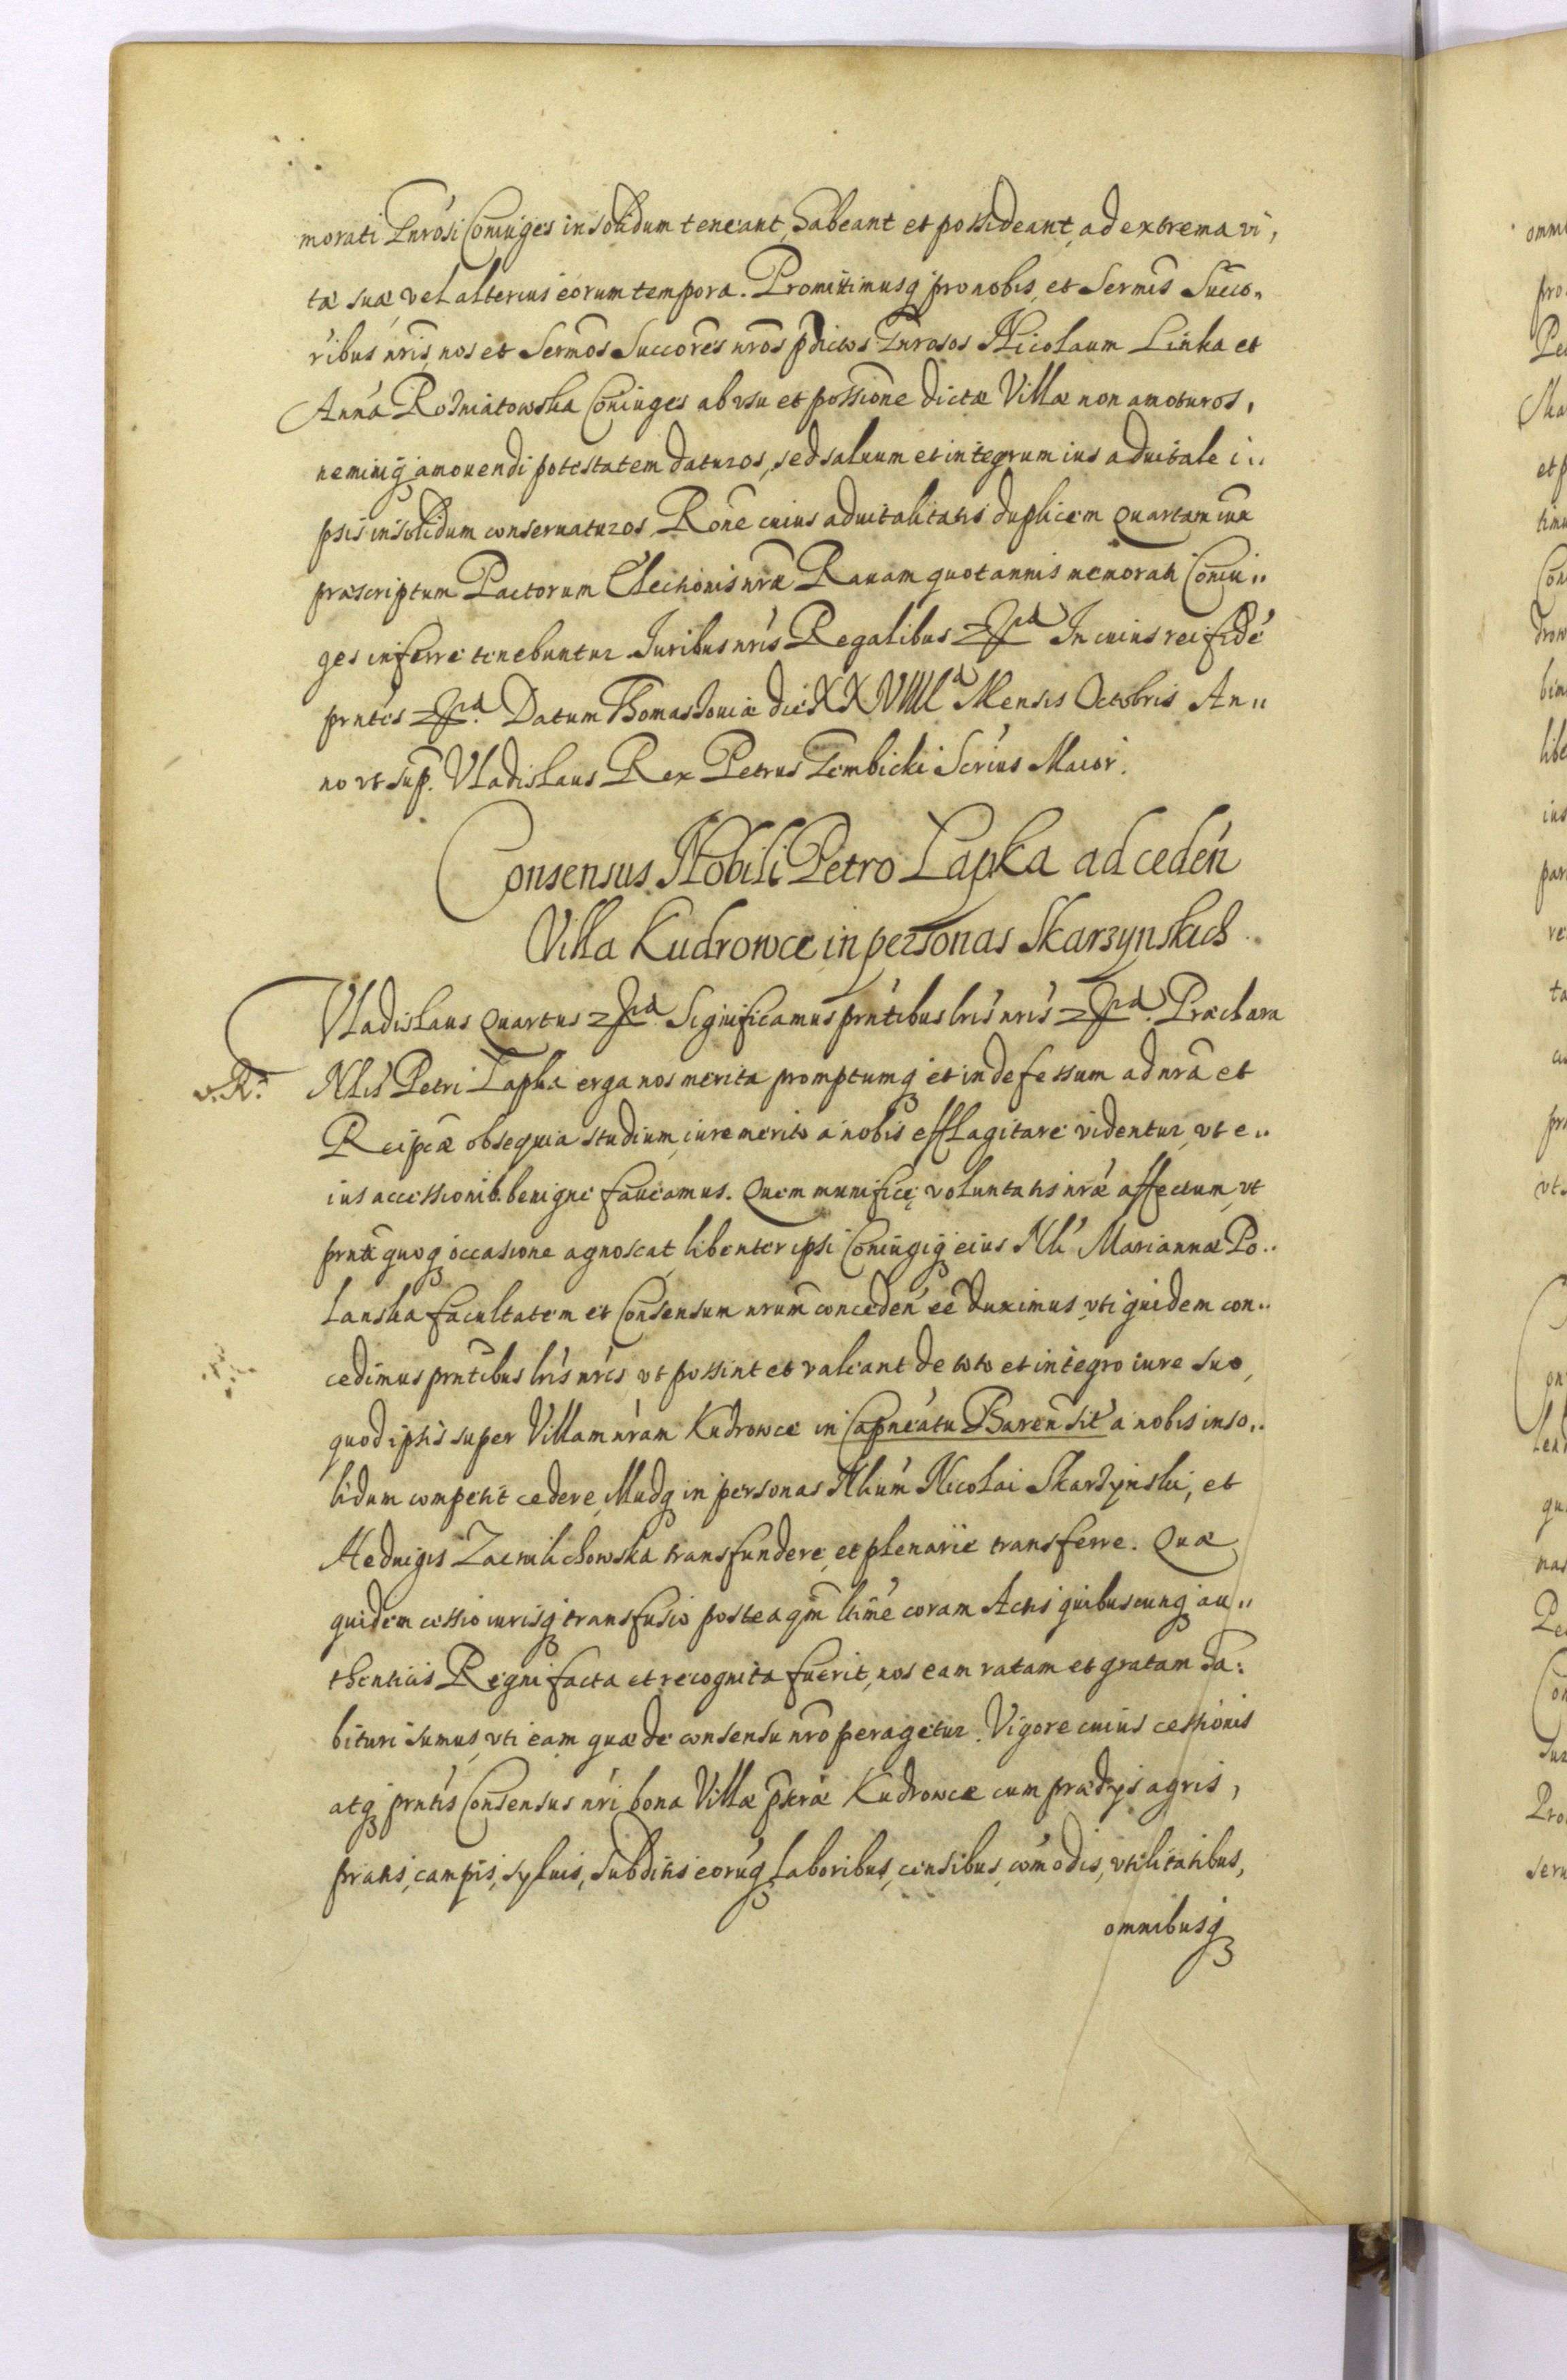 morati Gnrosi Coniuges in solidum teneant, habeant et possideant, ad extrema vi,
tæ suæ, vel alterius eorum tempora. Promittimusq pro nobis, et Sermis Succo,
ribus nris, nos et Sermos Succores nros pdictos Gnrosos Nicolaum Linka et
Anna Rozniatowska Coniuges ab vsu et possione dictæ Villæ non amoturos,
neminiq amouendi potestatem daturos, sed saluum et integrum ius aduitale i..
psis in solidum conseruaturos. Rone cuius aduitalitatis duplicem Quartam iux
præscriptum Pactorum Electionis nræ Rauam quotannis memorati Coniu..
ges inferre tenebuntur. Juribus nris Regalibus In cuius rei fidé
prntes Datum Thomassouiæ die XXVIIII Mensis Octobris An..
no vt sup. Vladislaus Rex Petrus Gembicki Scrius Maior.
Consensus Nobili Petro Lapka ad cedén
Villa Kudrowce in personas Skarzynskich.
Vladislaus Quartus Significamus prntibus lris nris Præclara
v. R. Nlis Petri Lapka erga nos merita promptumq et indefessum ad nra et
Reipcæ obsequia studium, iure merito a nobis efflagitare videntur, vt e..
ius accessionib. benigne faueamus. Quem munificę voluntatis nræ affectum, vt
prnti quoq occasione agnoscat, libenter ipsi Coniugiq eius Nli Mariannæ Po..
lanska facultatem et Consensum nrum conceden ee duximus, vti quidem con..
cedimus prntibus lris nris vt possint et valeant de toto et integro iure suo,
quod ipsis super Villam nram Kudrowce in Capneatu Barensi sit a nobis in so..
lidum competit cedere, illudq in personas Nlium Nicolai Skarzynski, et
Heduigis Zaemlichowska transfundere, et plenarie transferre. Quæ
quidem cessio iurisq transfusio postea qm ltime coram Actis quibuscunq au..
thenticis Regni facta et recognita fuerit, nos eam ratam et gratam ha:
bituri sumus, vti eam quæ de consensu nro peragetur. Vigore cuius cessionis
atq prntis Consensus nri bona Villæ pscræ Kudrowce cum prædijs agris,
pratis, campis, syluis, subditis eorúq laboribus, censibus, comodis, vtilitatibus,
omnibusq